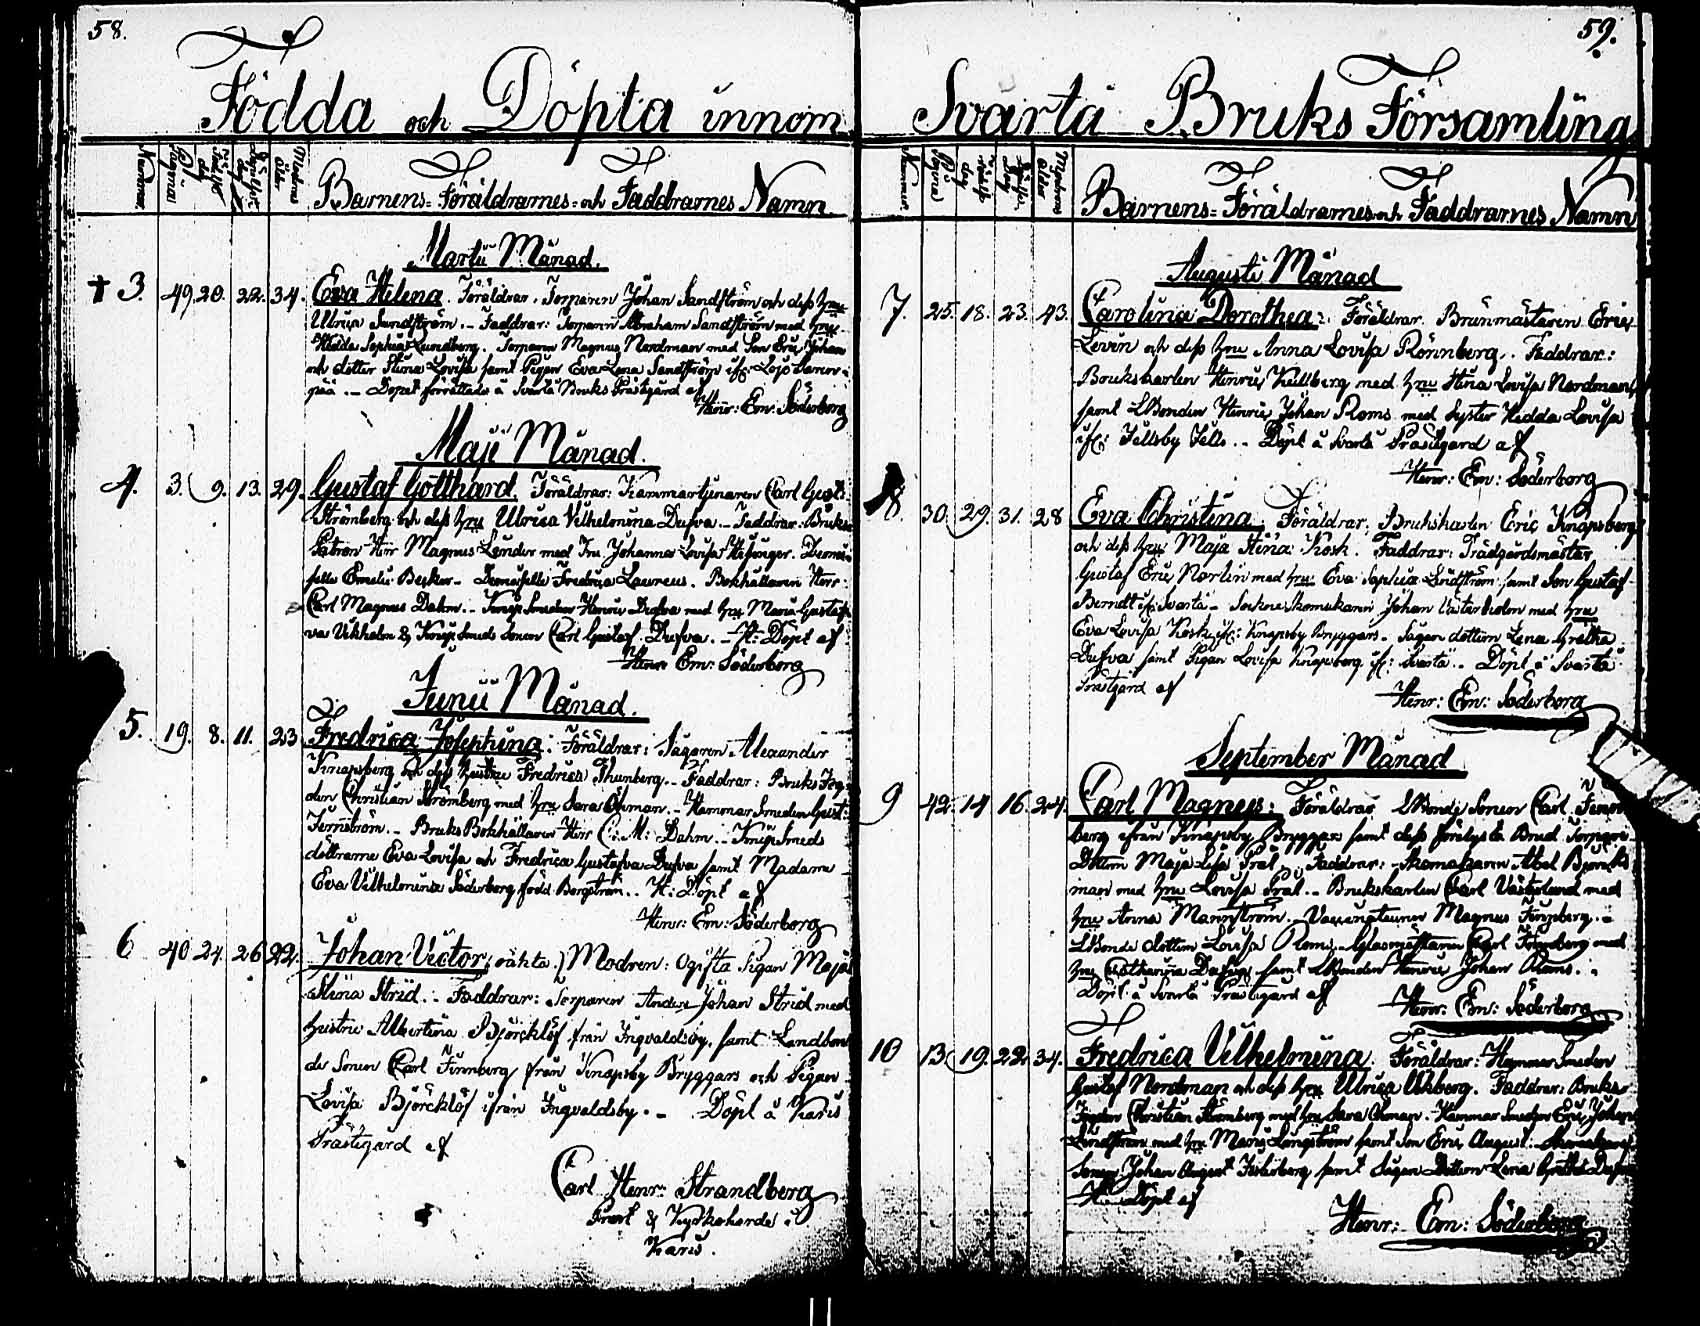 58.
Födda och Döpta innom
Barnens= Föräldrarnes= och Faddrarnes Namn
Martii Månad.
3. 49. 20. 22. 34. Eva Helena. Föräldrar. Torparen Johan Sandström och dess hru
Ulrica Sandström. Faddrar: Torparen Abraham Sandström med hru
Hedda Sophia Lundberg. Torparen Magnus Nordman med Son Eric Johan
och dotter Stina Lovisa samt Pigan Eva Lena Sandström
Döpet förrättades å Svartå Bruks Prästgård af
Henr: Em: Söderborg
Maji Månad.
4. 3. 9. 13. 29. Gustaf Gotthard. Föräldrar: Kammartjenaren Carl Gust:
Strömberg och dess hru Ulrica Vilhelmina Dufva. Faddrar: Bruks
Patron Herr Magnus Linder med Fru Johanna Lovisa Hisinger. Demoi-
selle Emelie Becker. Demoiselle Fredrica Laureus. Bokhållaren Herr
Carl Magnus Dahm. Knipsmeden Henric Dufva med hru Maria Gusta-
va Vikholm & Knipsmeds Sonen Carl Gustaf Dufva. H: Döpt af
Henr: Em: Söderborg
Junii Månad.
5. 19. 8. 11. 23 Fredrica Josephina: Föräldrar: Sågaren Alexander
Knapsberg och dess hustru Fredrica Thunberg. Faddrar: Bruks Fog-
den Christian Strömberg med hru Sara Öhman. Hammar Smeden Gust:
Jernström. Bruks Bokhållaren Herr C: M: Dahm. Knipsmeds
döttrarne Eva Lovisa och Fredrica Gustafva Dufva samt Madame
Eva Vilhelmina Söderborg född Bergström. H: Döpt af
Henr: Em: Söderborg
6 40 24. 26 22. Johan Victor, oähta.) Modren: Ogifta Pigan Maja
Stina Strid. Faddrar: Torparen Anders Johan Strid med
hustru Albertina Björcklöf från Ingvaldsby, samt Landbon-
de Sonen Carl Finnberg från Knapsby Bryggars och Pigan
Lovisa Björcklöf ifrån Ingvaldsby. Döpt å Karis
Prästgård af
Carl Henr: Strandberg
Prost & Kyrkoherde i
Karis.
59.
Svartå Bruks Församling
Barnens= Föräldrarnes och Faddrarnes Namn
Augusti Månad
7. 25. 18. 23. 43. Carolina Dorothea: Föräldrar. Brunmästaren Eric
Levin och dess hru Anna Lovisa Rönnberg. Faddrar:
Brukskarlen Henric Kullberg med hru Stina Lovisa Nordman,
samt LBonden Henric Johan Roms med Syster Hedda Lovisa
Döpt å Svartå Prästgård af
Henr: Em: Söderborg
8. 30. 29. 31. 28 Eva Christina. Föräldrar. Brukskarlen Eric Knapsberg
och dess hru Maja Stina Kosk. Faddrar: Trädgårdsmästar
Gustaf Eric Norlin med hru Eva Sophia Lindström samt Son Gustaf
Berndt Svartå. Sockneskomakaren Johan Västerholm med hru
Eva Lovisa Kosk Knapsby Bryggars. Sågare dottern Lena Gretha
Dufva samt Pigan Lovisa Knapsberg Svartå. Döpt å Svartå
Prästgård af
Henr: Em: Söderborg
September Månad
9 42. 14 16. 24. Carl Magnus: Föräldrar LBonde Sonen Carl Finn-
berg ifrån Knapsby Bryggars samt dess förlofvade Brud Torpare
Dottern Maja Lisa Fräl. Faddrar: Abel Björck-
man med hru Lovisa Fräl. Brukskarlen Carl Västerlund med
hru Anna Mannström. Magnus Finnberg.
LBonde dottern Lovisa Roms. Glasmästaren Carl Finnberg med
hru Catharina Dufva samt LBonden Henric Johan Roms.
Döpt å Svartå Prästgård af
Henr: Em: Söderborg
10 13 19. 22. 34. Fredrica Vilhelmina. Föräldrar: Hammar Smeden
Gustaf Nordman och dess hru Ulrica Ekberg. Faddrar: Bruks-
Fogden Christian Strömberg med hru Sara Öhman. Hammar Smeden Eric Johan
Lindström med hru Maria Långström samt Son Eric August.
Sonen Johan August samt Sågare Dottern Lena Gretha Dufva
H: Döpt af
Henr: Em: Söderborg